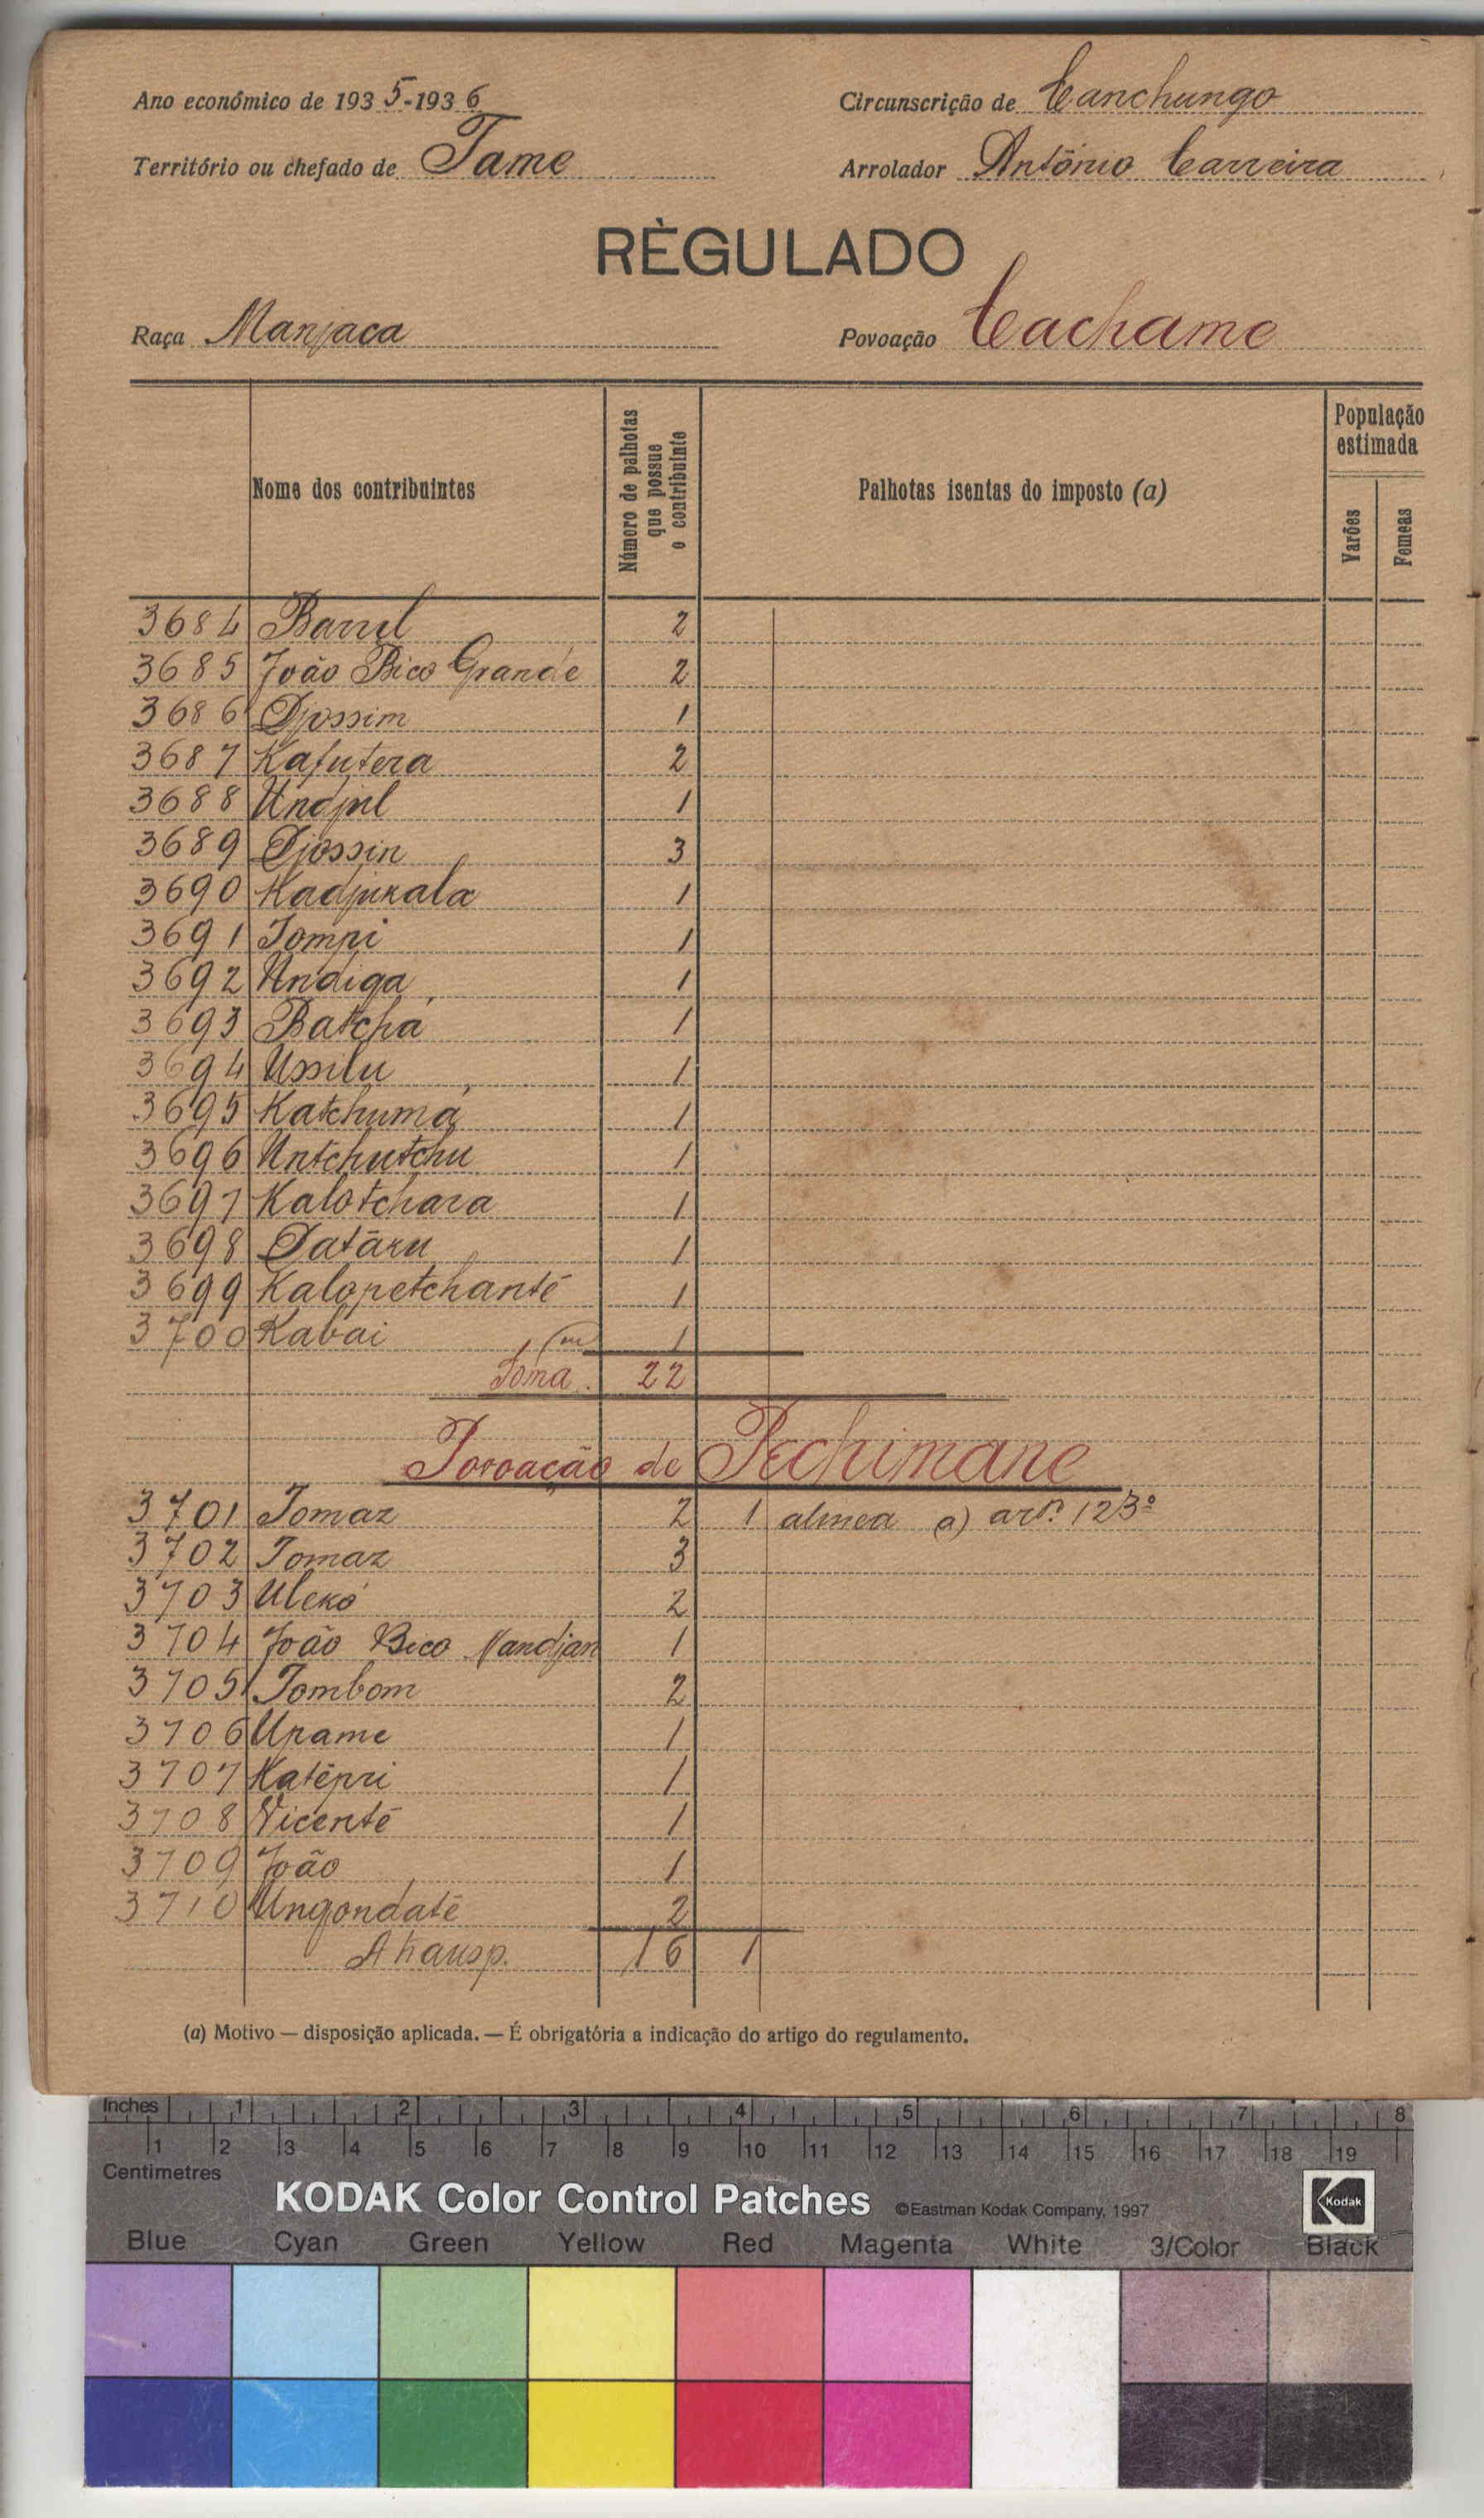 Ano económico de 1935-1936
Circunscrição de Canchungo
Território ou chefado de Tame
Arrolador António Carreira
RÈGULADO
Raça Manjaca
Povoação Cachame
Nome dos contribuintes
Número de palhotas que possue o contribuinte
Palhotas isentas do imposto (a)
População estimada
Varões
Femeas
3684 Barril 2
3685 João Bico Grande 2
3686 Djossim 1
3687 Kafutera 2
3688 Undjul 1
3689 Djossin 3
3690 Kadjukala 1
3691 Tompi 1
3692 Undiga 1
3693 Batchá 1
3694 Ussilu 1
3695 Katchumá 1
3696 Untchutchu 1
3697 Kalotchara 1
3698 Datāku 1
3699 Kalopetchanté 1
3700 Kabai (m) 1
Soma. 22
Povoação de Pechimane
3701 Tomaz 2 1 almea a) artº 123º
3702 Tomaz 3
3703 Ulekó 2
3704 João Bico Nandjan 1
3705 Tombom 2
3706 Upame 1
3707 Katēpri 1
3708 Vicenté 1
3709 João 1
3710 Ungondatē 2
A transp. 16 1
(a) Motivo — disposição aplicada. — É obrigatória a indicação do artigo do regulamento.
Inches 1 2 3 4 5 6 7 8
1 2 3 4 5 6 7 8 9 10 11 12 13 14 15 16 17 18 19
Centimetres
KODAK Color Control Patches ©Eastman Kodak Company, 1997 Kodak
Blue Cyan Green Yellow Red Magenta White 3/Color Black